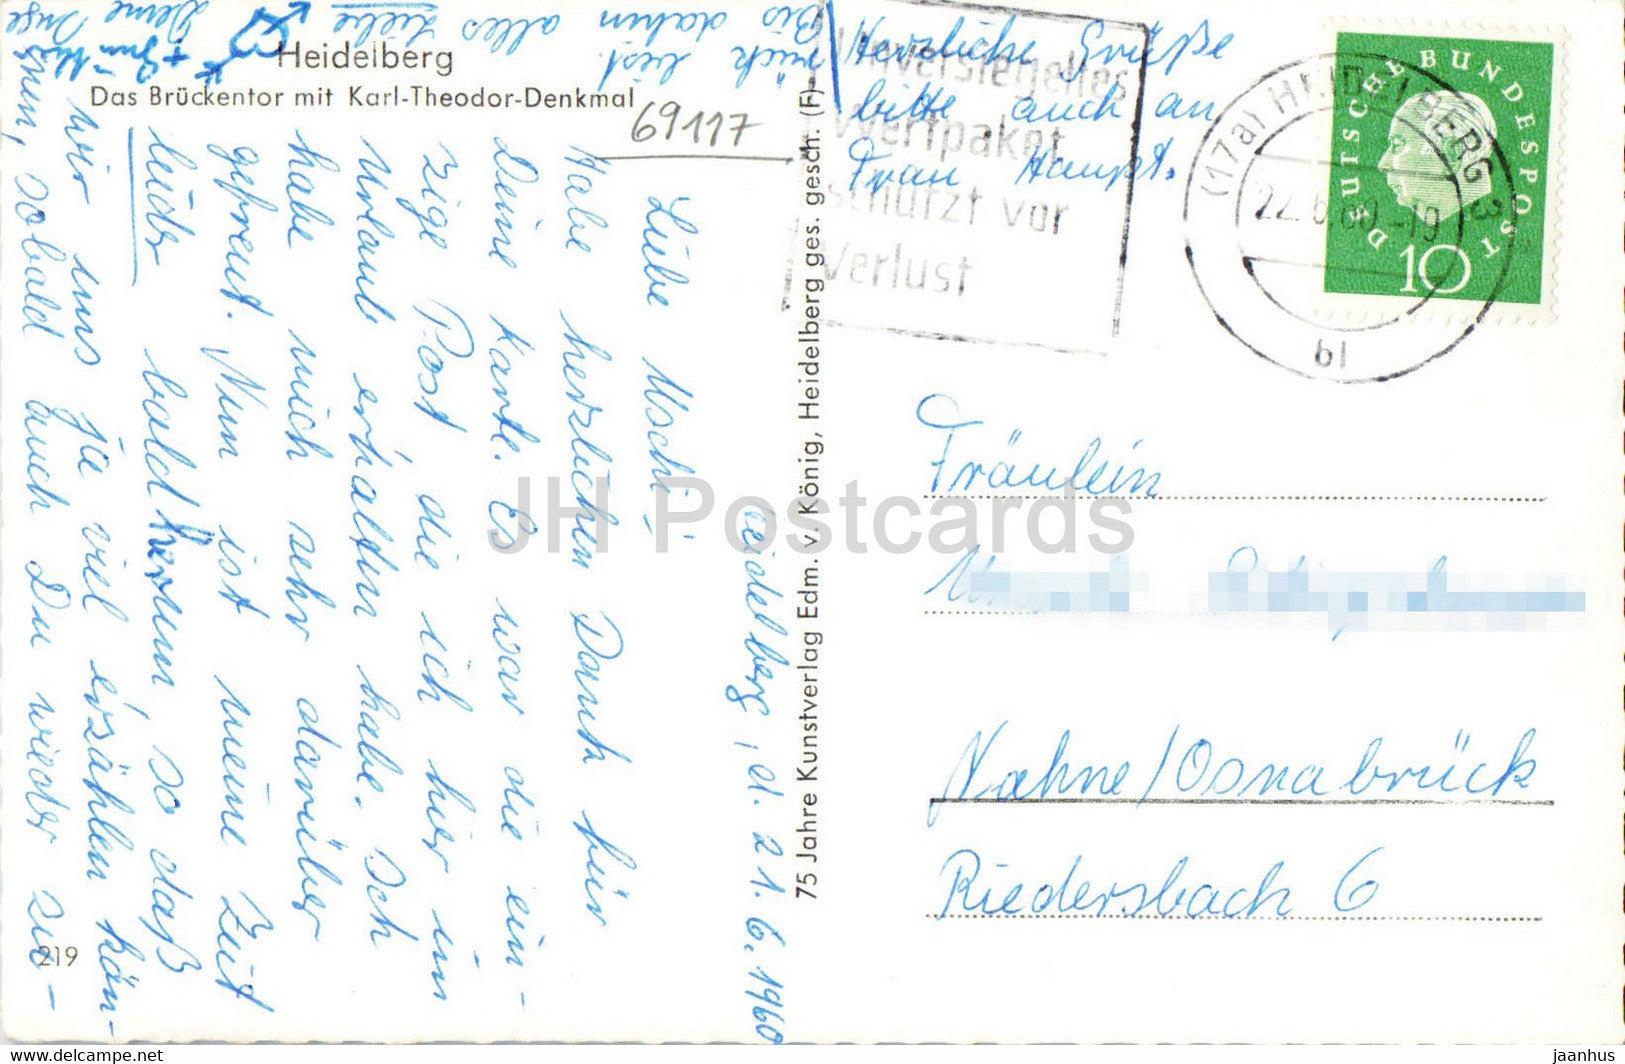 Heidelberg
Das Brückentor mit Karl-Theodor-Denkmal
69117
Heidelberg, d. 21.6.1960
Liebe Uschi!
Habe herzlichen Dank für
Deine Karte. Es war die ein-
zige Post die ich hier im
Urlaub erhalten habe. Ich
habe mich sehr darüber
gefreut. Nun ist meine Zeit
leider bald herum, so daß
wir uns ja viel erzählen kön-
nen, sobald auch Du wieder zu-
rück bist.
Bis dahin
alles Liebe
Deine Inge
Herzliche Grüße
bitte auch an
Frau Haupt.
219
75 Jahre Kunstverlag Edm. v. König, Heidelberg ges. gesch. (F)
Unversiegeltes
Wertpaket
schützt vor
Verlust
(17a) HEIDELBERG 3
22.6.60.-19
bl
DEUTSCHE BUNDESPOST
10
Fräulein
Nahne/Osnabrück
Riedersbach 6
JH Postcards
www.delcampe.net
jaanhus